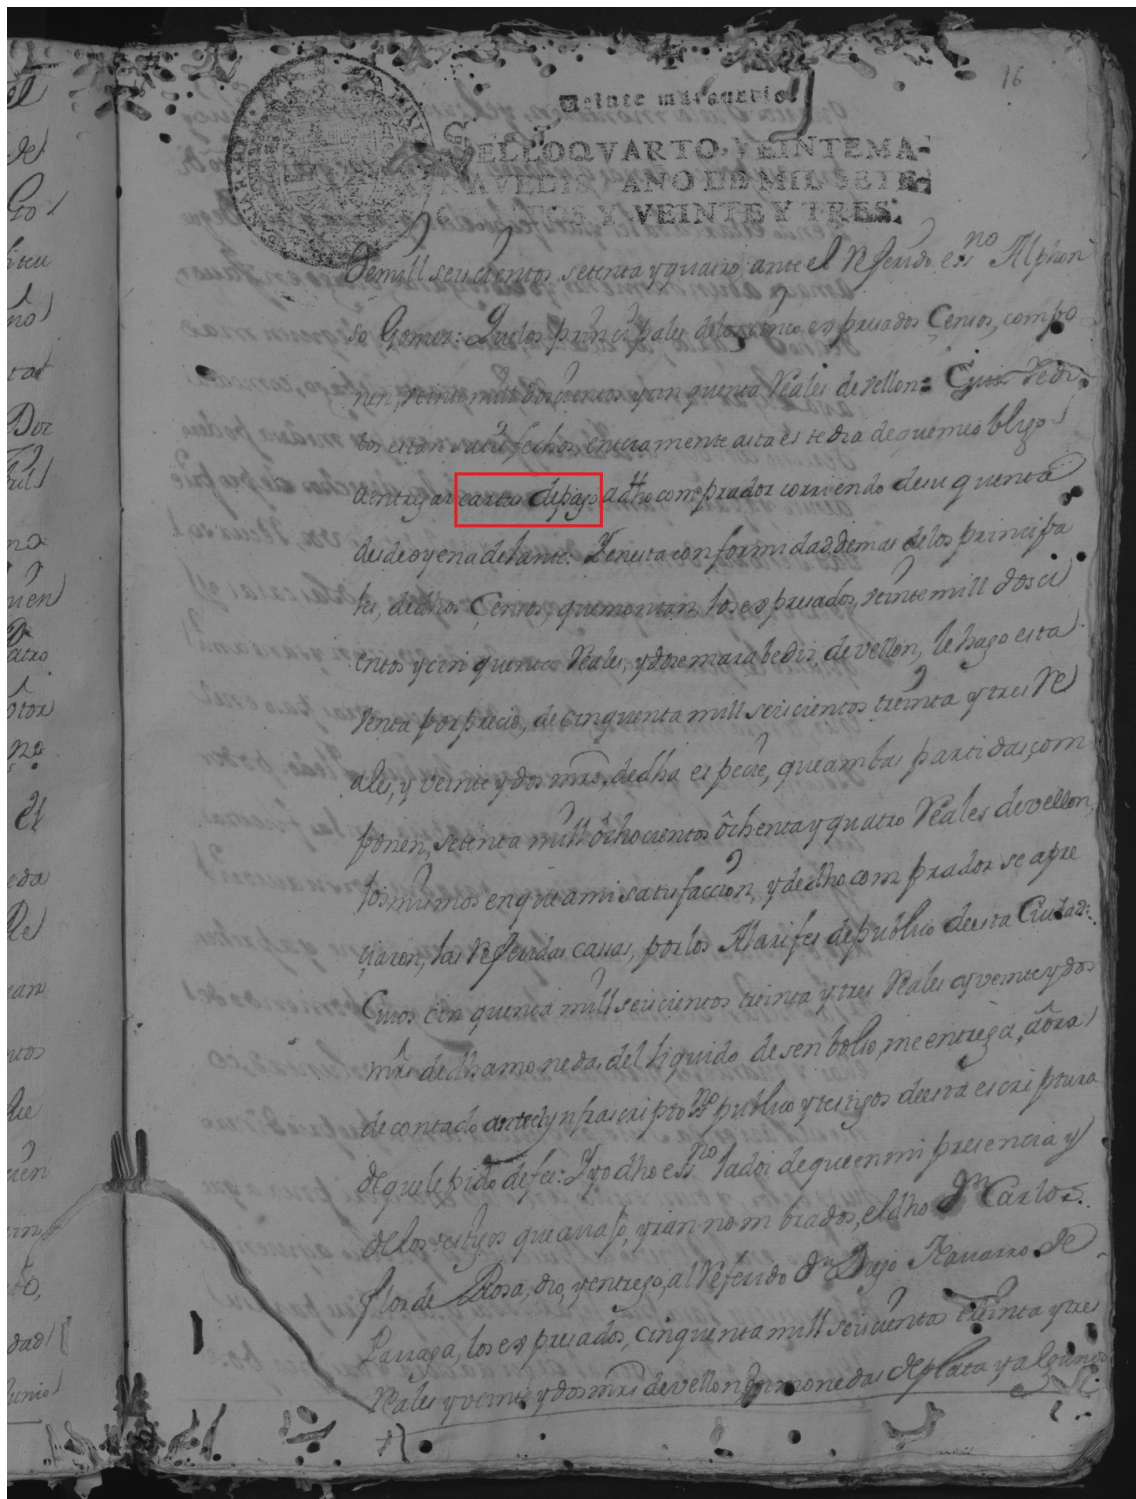 16
Veinte maravedis.
SELLO QVARTO, VEINTE MA-
RAVEDIS, AÑO DE MIL SETE-
CIENTOS Y VEINTE Y TRES.
de mill seiscientos setenta y quatro ante el Referido essno Alphon
so Gomez: Que los prinçipales de los cinco expresados Çensos, compo
nen, veinte mill doscientos y cin quenta Reales de vellon: Cuios redi
tos estan satisfechos enteramente asta este dia de que me obligo
a entregar cartas de pago a dho comprador corriendo de su quenta
desde oy en adelante: Y en esta conformidad demas de los principa
les, de dhos Çensos, que montan los expresados, veinte mill dosci
entos y cin quenta Reales, y doze marabedis de vellon, le hago esta
venta por precio, de cinquenta mill seiscientos treinta y tres Re
ales, y veinte y dos mrs, de dha espeçie, que ambas partidas, com
ponen, setenta mill ôchocientos ôchenta y quatro Reales de vellon,
los mismos en que a mi satisfaccion, y de dho com prador se apre
çiaron, las Referidas cassas, por los Alarifes de publico de esta Ciudad:
Cuios cin quenta mill seiscientos treinta y tres Reales y veinte y dos
mrs de dha moneda, del liquido desenbolso, me entrega, aôra
de contado ante el ynfrascripto essno publico y testigos de esta escriptura
de que le pido de fee: Y yo dho essno la doi de que en mi presencia y
de los testigos que avajo, yrian nom brados, el dho Dn Carlos
flor de Rosa, dio, y entrego, al Referido Dn Diego Navarro de
Parraga, los expresados, cinquenta mill seiscientos treinta y tres
Reales y veinte y dos mrs de vellon, en monedas de plata y algunos